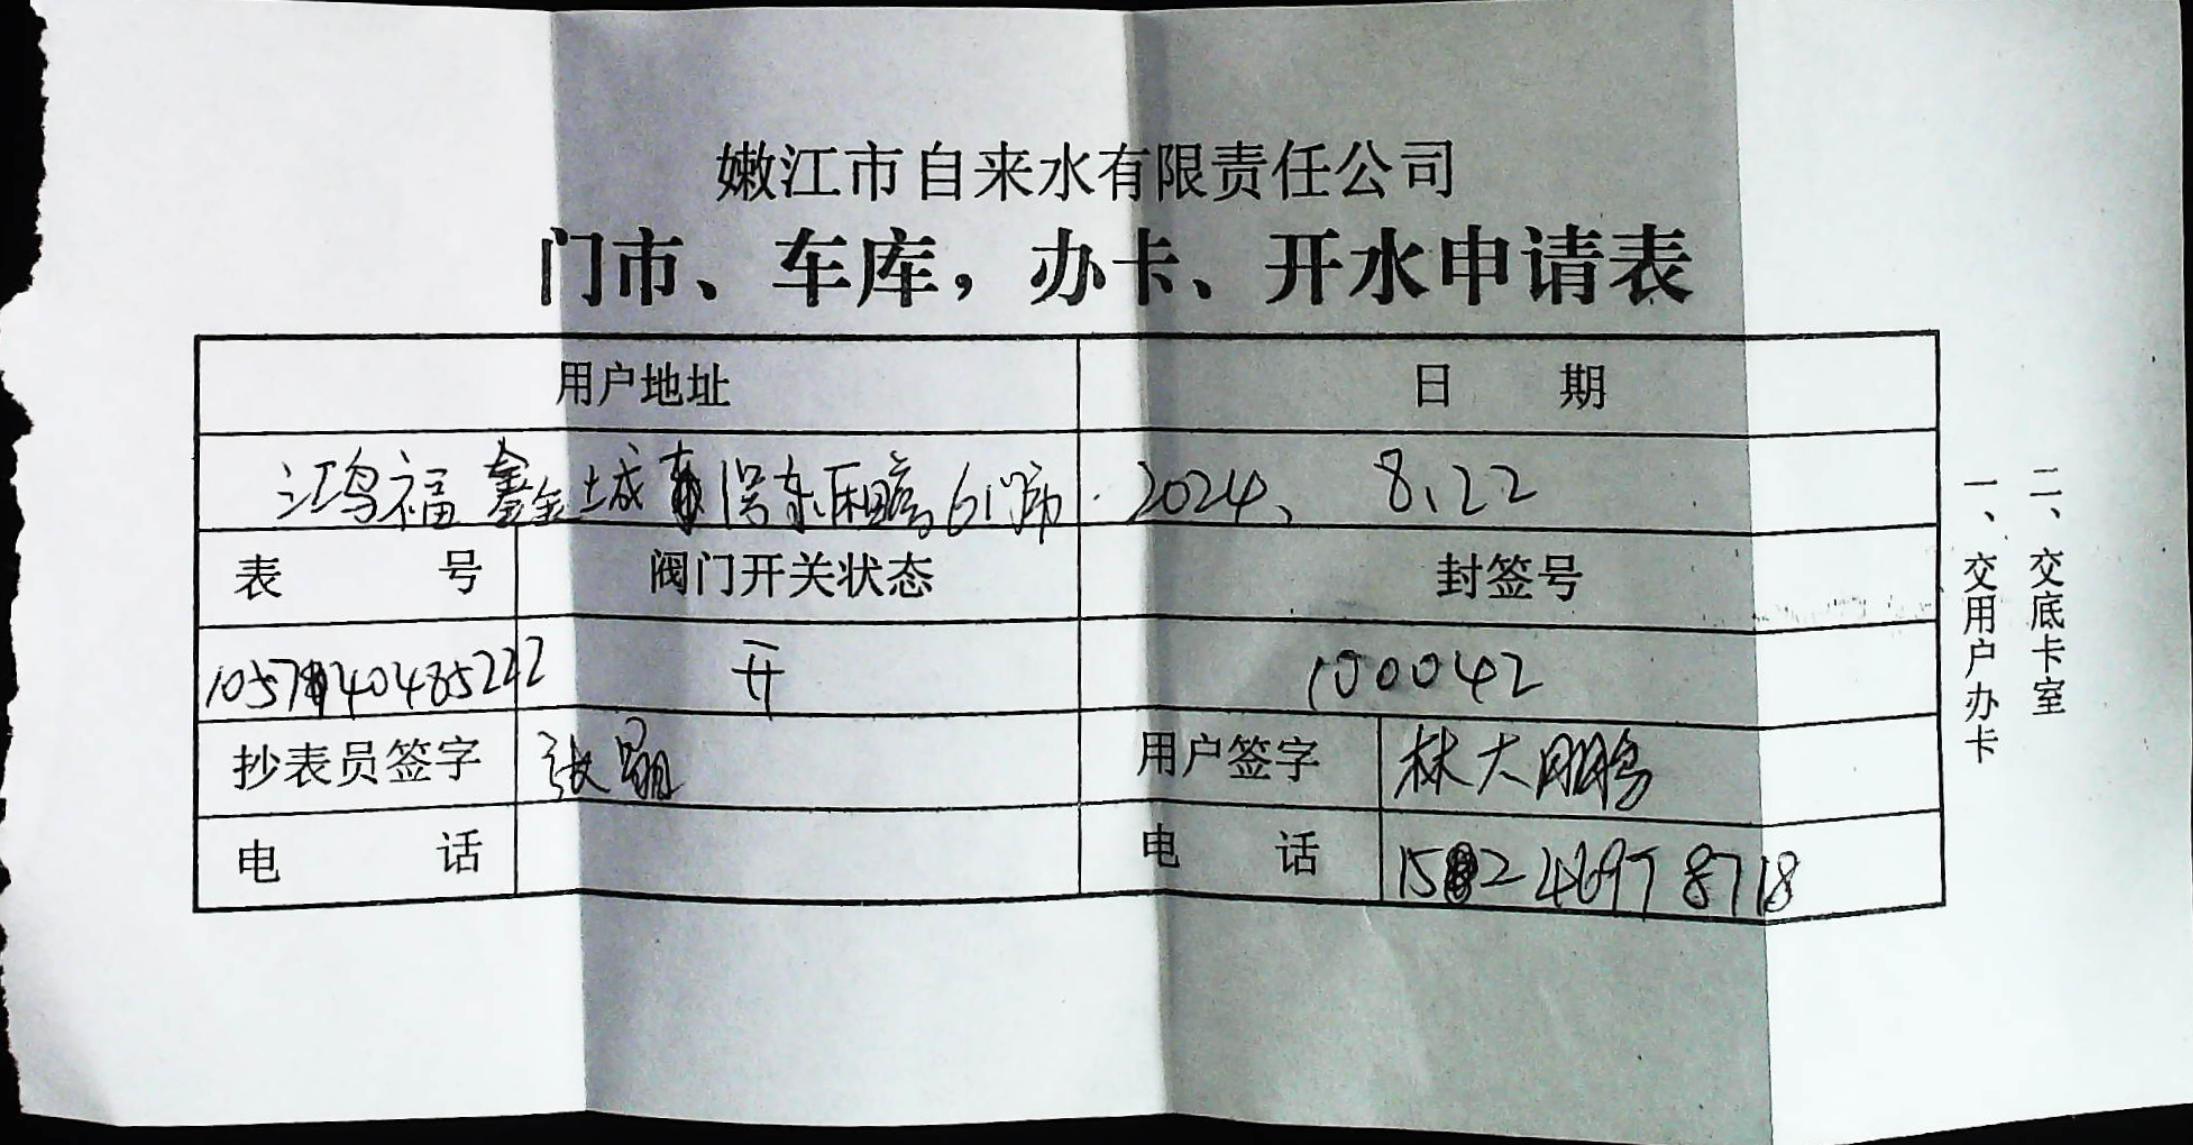 嫩江市自来水有限责任公司
门市、车库，办卡、开水申请表
用户地址 日 期
鸿福鑫城 东 6门市 2024、8、22
表 号 阀门开关状态 封签号
开 100042
抄表员签字 张 用户签字 林大鹏
电 话 电 话 246978718
一、交用户办卡
二、交底卡室